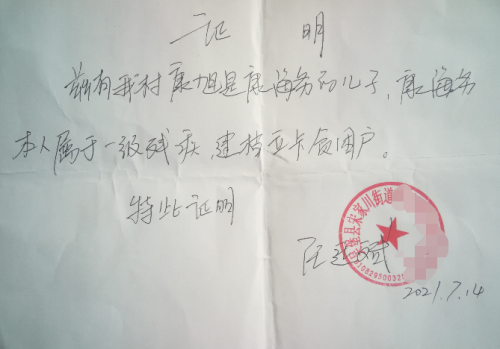 证 明
兹有我村康旭是康海务的儿子,康海务
本人属于一级残疾,建档立卡贫困户。
特此证明
吴堡县宋家川街道
任
2021.7.14